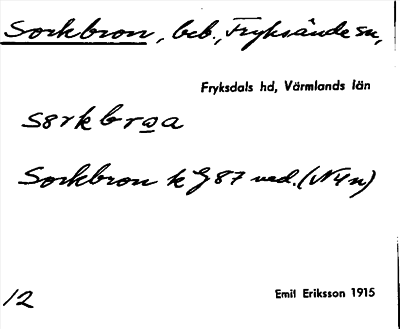 Sorkbron, beb., Fryksände sn,
Fryksdals hd, Värmlands län
sɵrkbrɷa
Sorkbron k G 87 ved. (N4n)
12
Emil Eriksson 1915